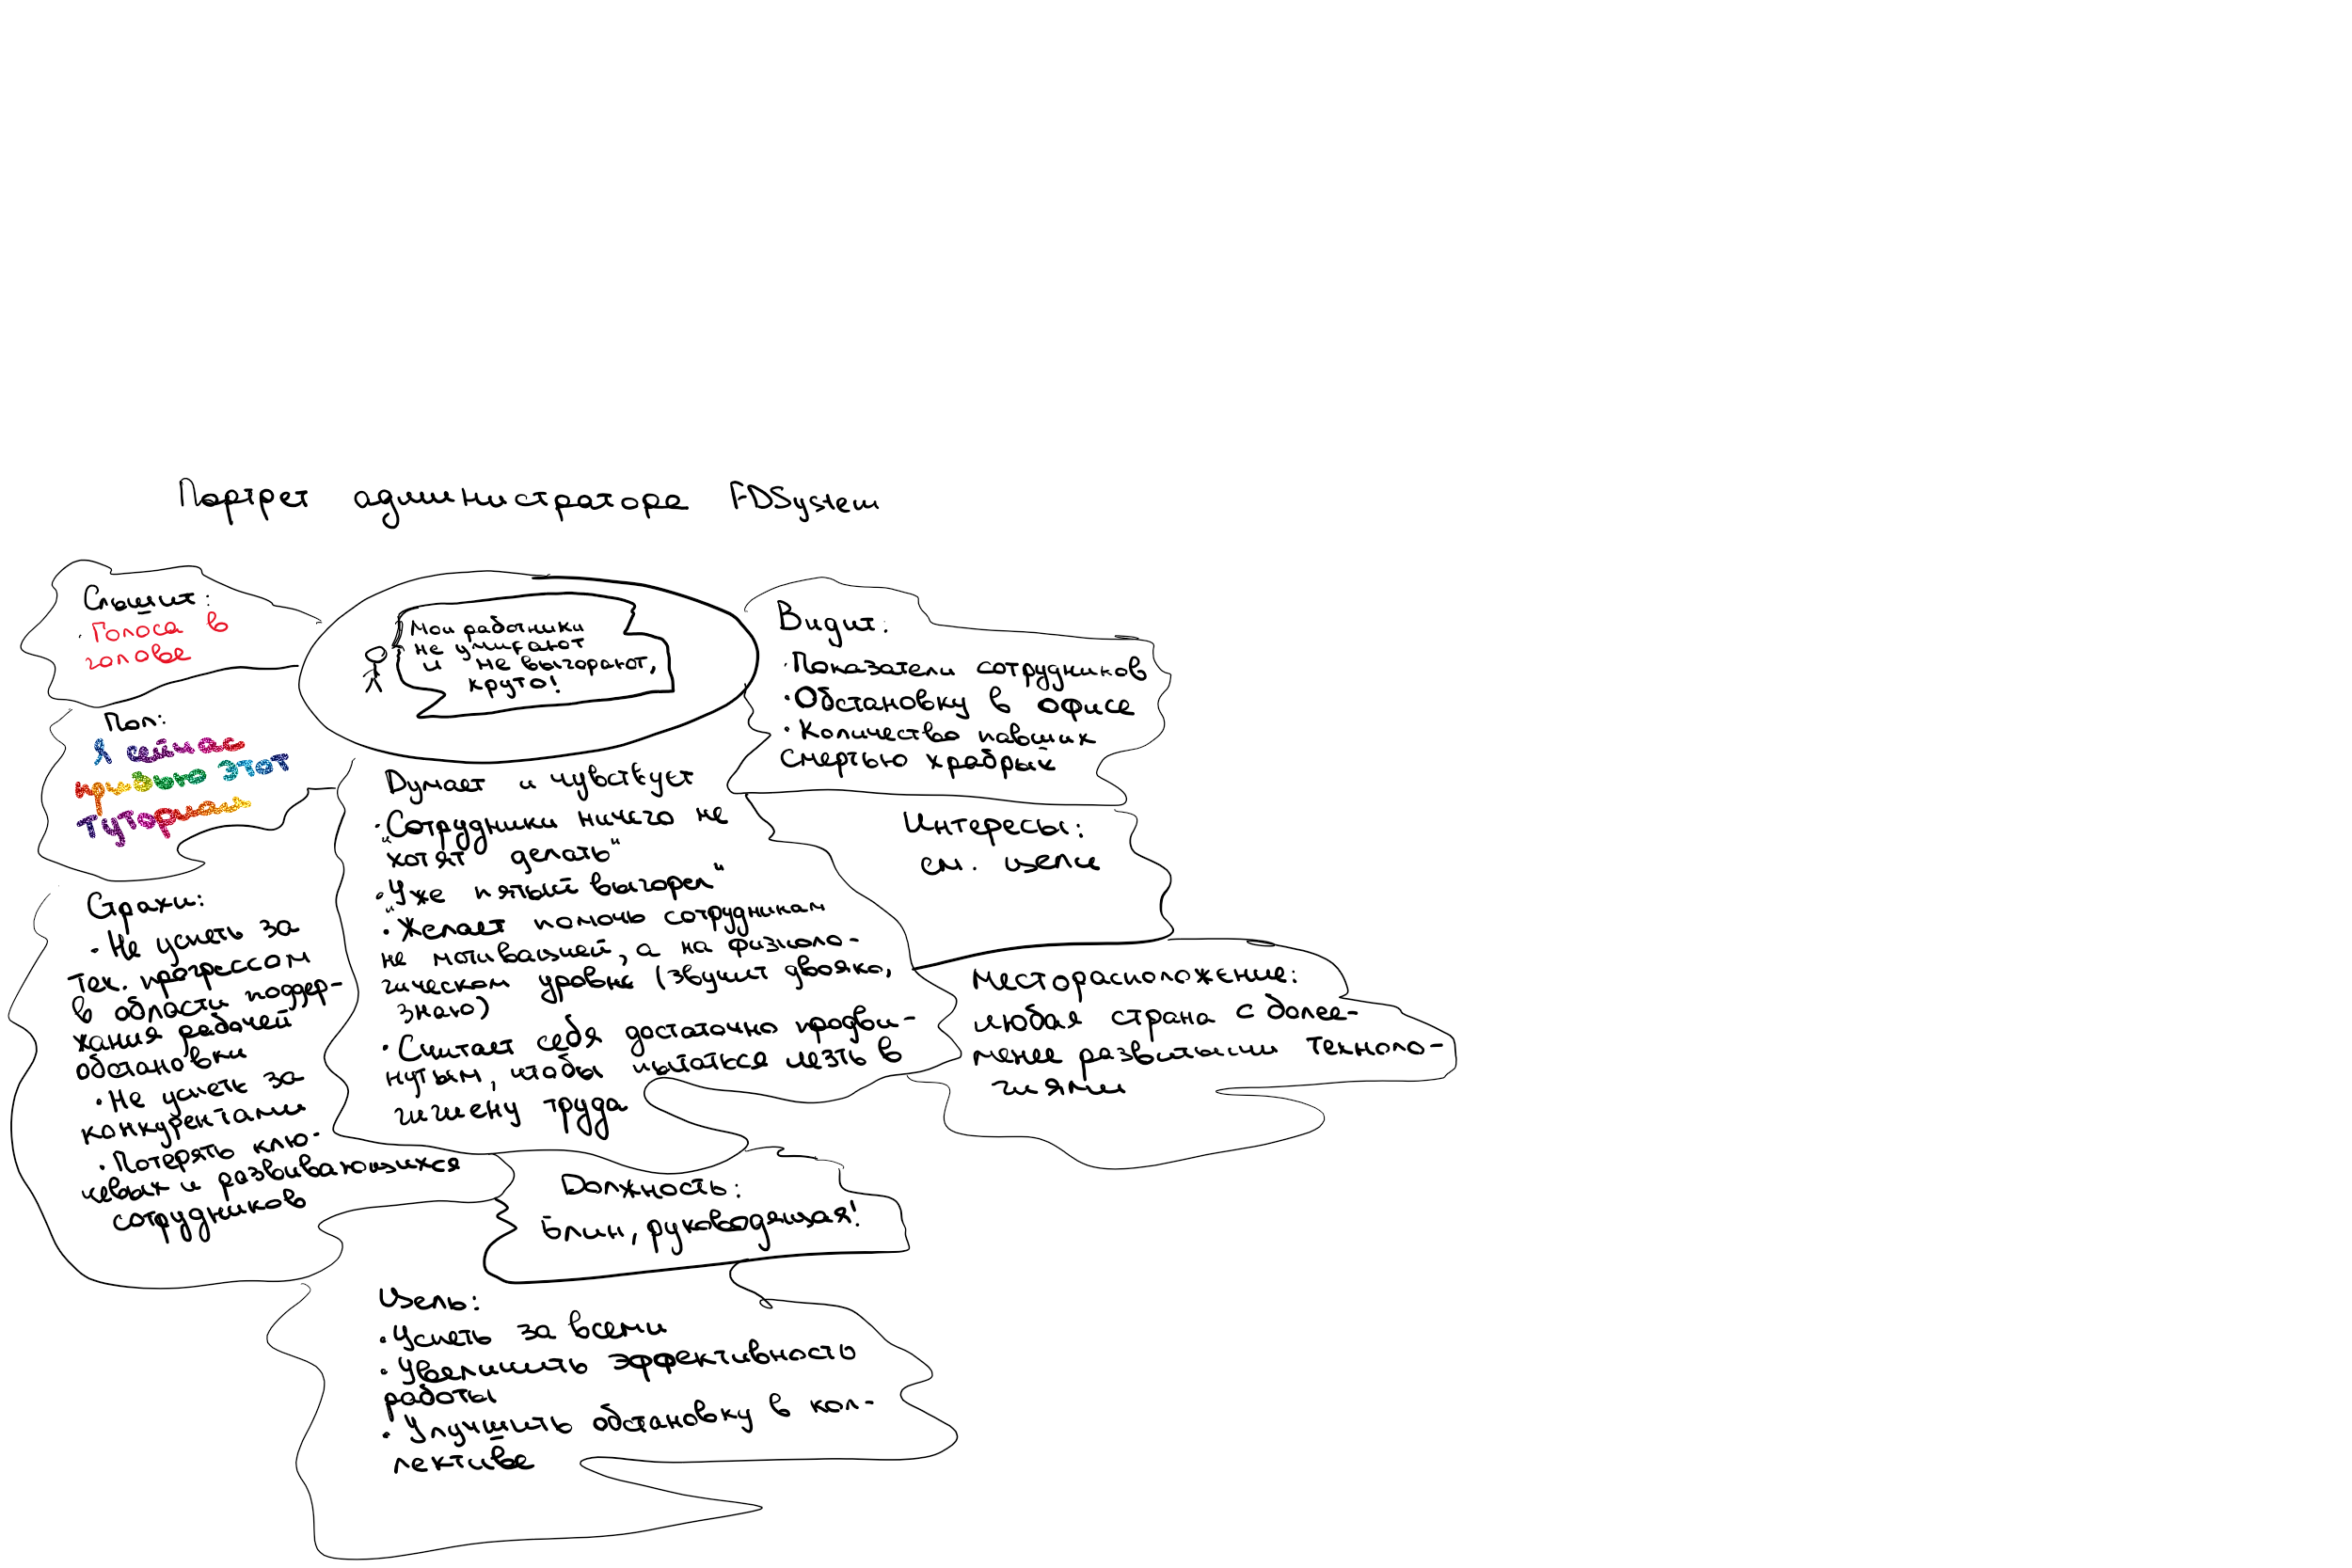 Портрет администратора FDSystem
Слышит:
· Голоса в
голове
Мои работники
не умирают
и не выгорают,
круто!
Видит:
· Показатели сотрудников
· Обстановку в офисе
· Количество павших
смертью храбрых
Пол:
Я сейчас
кридью этот
туториал
Думает и чувствует
· "Сотрудники ничего не
хотят делать"
· "Уже пятый выгорел"
· Желает помочь сотрудникам
не мотивацией, а на физиоло-
гическом уровне (звучит двояко,
знаю)
· Считает себя достаточно продви-
нутым, чтобы пытаться лезть в
гигиену труда
Интересы:
см. цели
Страхи:
· Не успеть за
тех. прогрессом
в области поддер-
жания рабочей
обстановки
· Не успеть за
конкурентами
· Потерять клю-
чевых и развивающихся
сотрудников
Месторасположение:
любая страна с более-
менее развитыми техноло-
гиями
Должность:
Блин, руководящая!
Цель:
· Успеть за всеми
· Увеличить эффективность
работы
· Улучшить обстановку в кол-
лективе